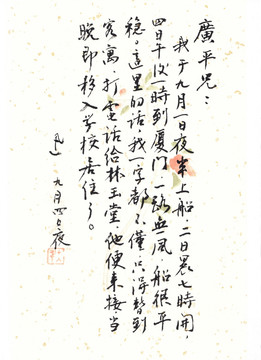 廣平兄：
我于九月一日夜半上船，二日晨七時開，
四日午後一時到厦门，一路無風，船很平
穩。這里的話，我一字都不懂，只得暫到
客寓，打電話給林玉堂，他便來接，当
晚即移入学校居住了。
迅 九月四日夜